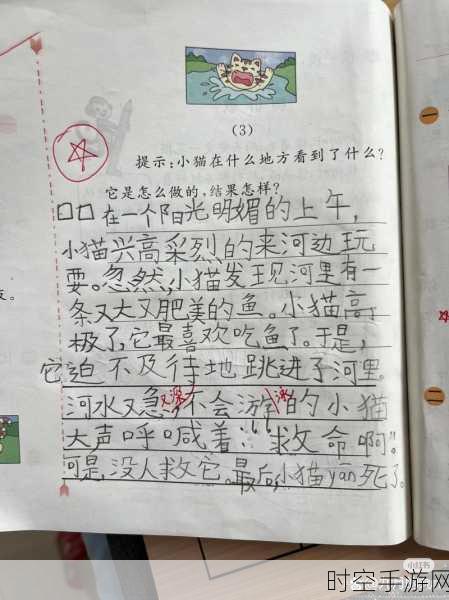 (3)
提示:小猫在什么地方看到了什么?
它是怎么做的,结果怎样?
在一个阳光明媚的上午,
小猫兴高采烈的来河边玩
耍。忽然,小猫发现河里有一
条又大又肥美的鱼。小猫高
极了,它最喜欢吃鱼了。于是,
它迫不及待地跳进了河里。
河水又急又深,不会游泳的小猫
大声呼喊着:“救命啊”。
可是,没人救它。最后,小猫yān死了。
小红书
时空手游网